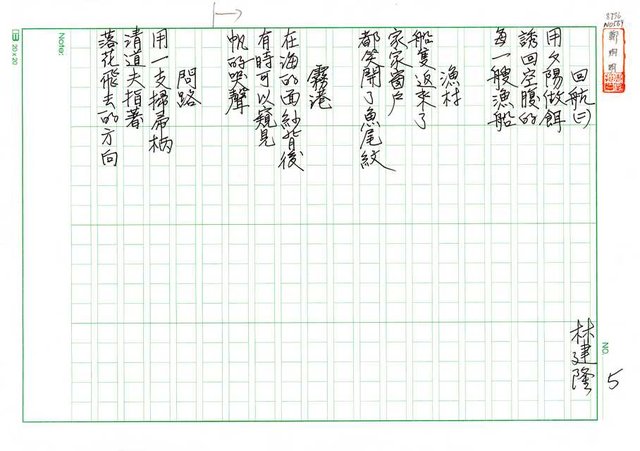 回航㈡
用夕陽做餌
誘回空腹的
每一艘漁船
漁村
船隻返來了
家家窗戶
都笑開了魚尾紋
霧港
在海的面紗背後
有時可以窺見
帆的吧聲
問路
用一支掃帚柄
清道夫指著
落花飛去的方向
林建隆
NO. 5
Note:
20 x 20